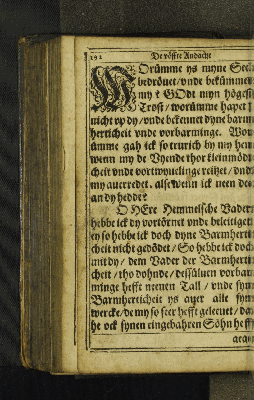 192 De vöffte Andacht
WOrümme ys myne Seel
bedröuet/ vnde bekümmer
my? GOdt myn högest
Trost/ worümme hapet
nicht vp dy/ vnde bekennet dyne barm
herticheit vnde vorbarminge. Wor
ümme gah ick so trurich by my hen
wenn my de Vyende thor kleinmödi
cheit vnde vortwyuelinge reitzet/ vnd
my auerredet, alse wenn ick neen deel
an dy hedde?
O HEre Hemmelsche Vader
hebbe ick dy vortörnet vnde beleidiget
ey so hebbe ick doch dyne Barmherti
cheit nicht gedödet/ So hebbe ick doch
mit dy/ dem Vader der Barmherti
cheit/ tho dohnde/ dessüluen vorbar
minge hefft neenen Tall/ vnde syn
Barmherticheit ys auer alle syne
wercke/ de my so seer hefft geleeuet/ dat
he ock synen eingebahren Söhn heff